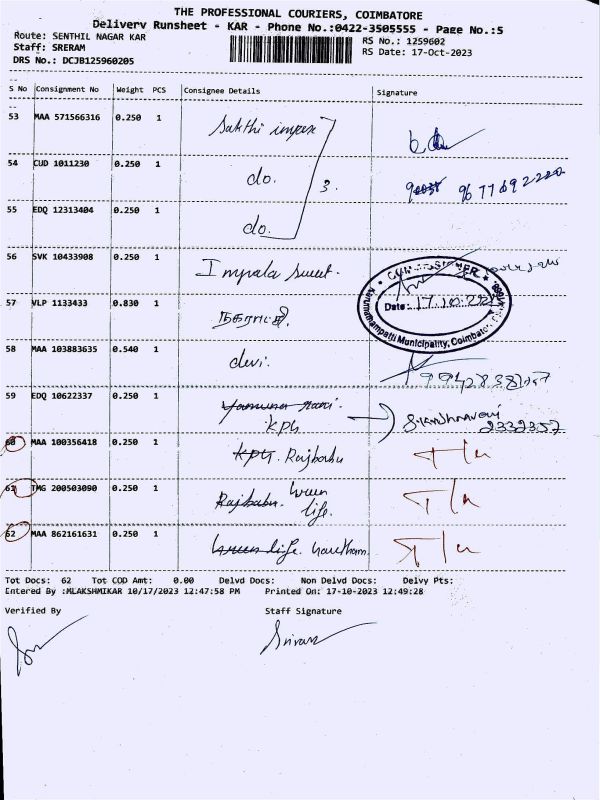 THE PROFESSIONAL COURIERS, COIMBATORE
Delivery Runsheet - KAR - Phone No.:0422-3505555 - Page No.:5
Route: SENTHIL NAGAR KAR
RS No.: 1259602
Staff: SRERAM
RS Date: 17-Oct-2023
DRS No.: DCJB125960205
S No Consignment No Weight PCS Consignee Details Signature
53 MAA 571566316 0.250 1 Sakthi impex
54 CUD 1011230 0.250 1 do. 3. 9677692220
55 EDQ 12313404 0.250 1 do.
56 SVK 10433908 0.250 1 Impala sweet.
COMMISSIONER
57 VLP 1133433 0.830 1 நகராட்சி. Date: 17.10.23
Karumathampatti Municipality, Coimbatore
58 MAA 103883635 0.540 1 devi.
59 EDQ 10622337 0.250 1 Yamuna rani.
KPG 2332357
60 MAA 100356418 0.250 1 KPG. Rajbabu
61 TMG 200503090 0.250 1 Rajbabu. Green
life.
62 MAA 862161631 0.250 1 Green life. Gowtham.
Tot Docs: 62 Tot COD Amt: 0.00 Delvd Docs: Non Delvd Docs: Delvy Pts:
Entered By :MLAKSHMIKAR 10/17/2023 12:47:58 PM Printed On: 17-10-2023 12:49:28
Verified By Staff Signature